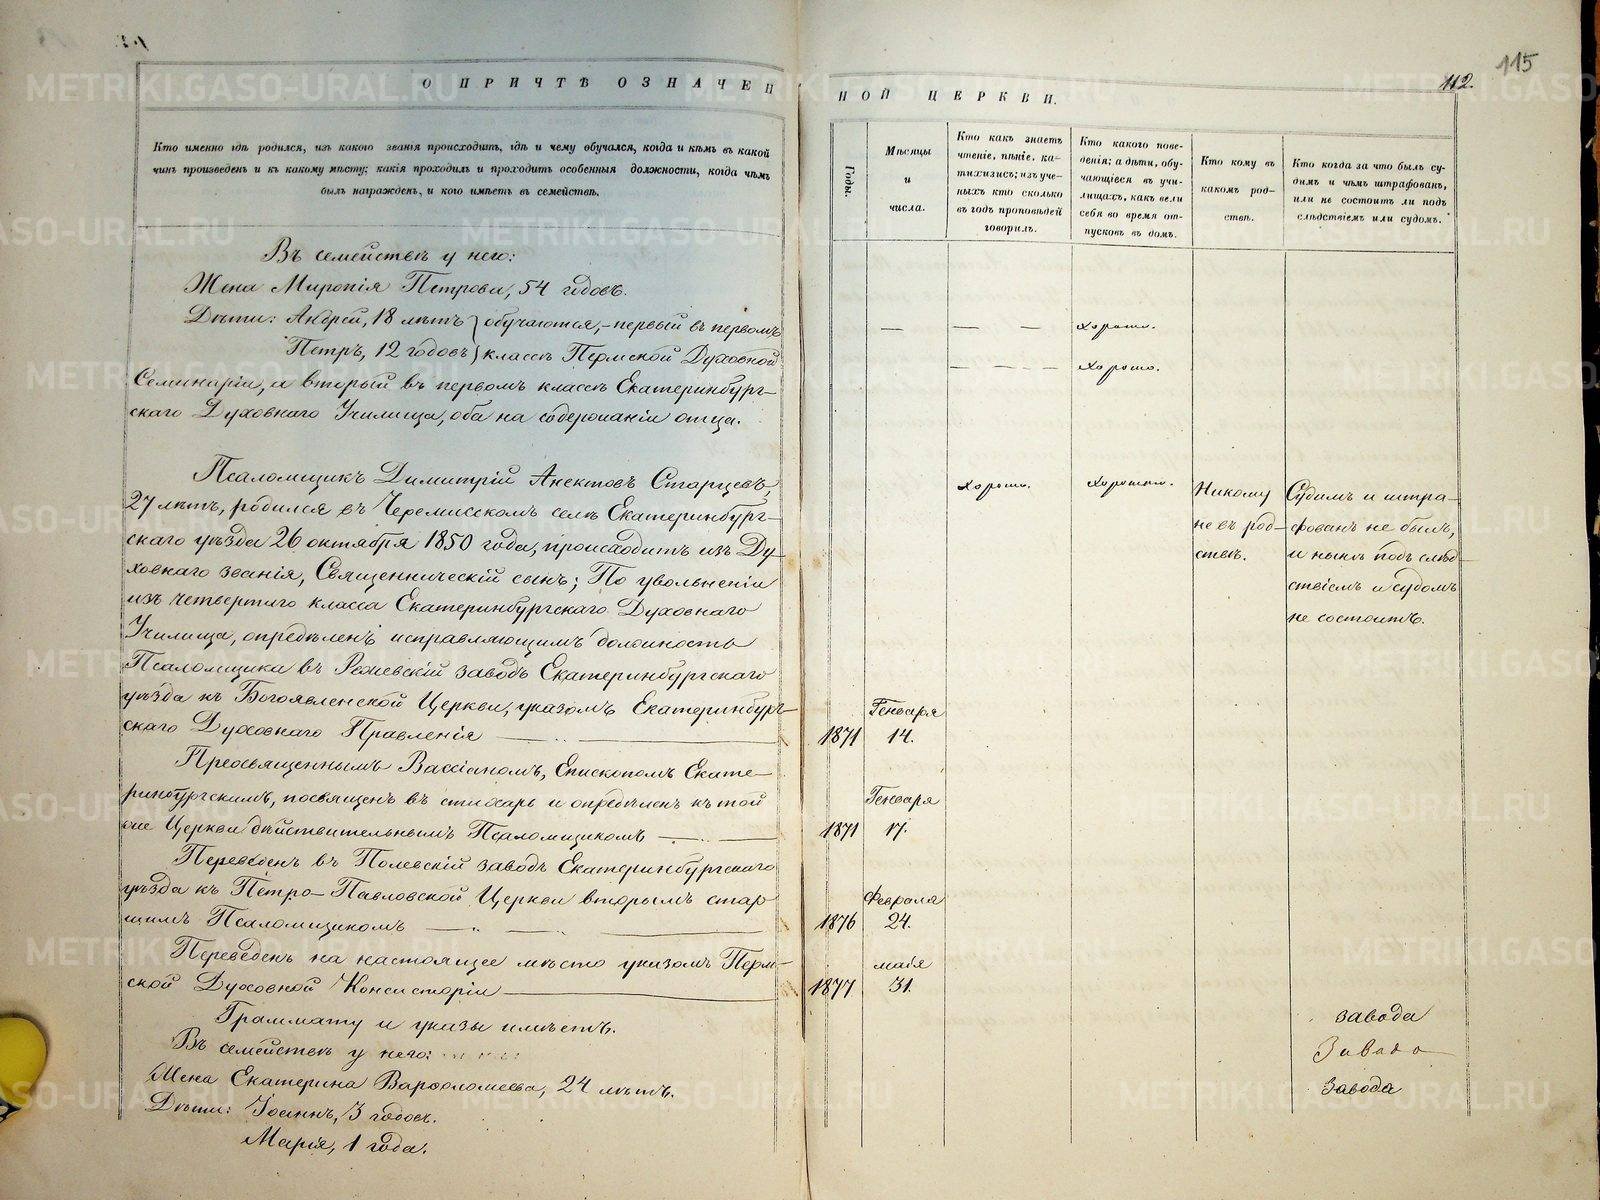 115
112.
О ПРИЧТѢ ОЗНАЧЕН
НОЙ ЦЕРКВИ.
Кто именно гдѣ родился, изъ какого званія происходитъ, гдѣ и чему обучался, когда и кѣмъ въ какой
чинъ произведенъ и къ какому мѣсту; какія проходилъ и проходитъ особенныя должности, когда чѣмъ
былъ награжденъ, и кого имѣетъ въ семействѣ.
Въ семействѣ у него:
Жена Миропія Петрова, 54 годовъ.
Дѣти: Андрей, 18 лѣтъ } обучаются,- первый въ первомъ
Петръ, 12 годовъ } классѣ Пермской Духовной
Семинаріи, а вторый въ первомъ классѣ Екатеринбург-
скаго Духовнаго Училища, оба на содержаніи отца.
Псаломщикъ Димитрій Анектовъ Старцевъ,
27 лѣтъ, родился въ Черемисскомъ селѣ Екатеринбург-
скаго уѣзда 26 октября 1850 года, происходитъ изъ Ду-
ховнаго званія, Священническій сынъ; По увольненіи
изъ четвертаго класса Екатеринбургскаго Духовнаго
Училища, опредѣленъ исправляющимъ должность
Псаломщика въ Режевскій заводъ Екатеринбургскаго
уѣзда къ Богоявленской Церкви, указомъ Екатеринбург-
скаго Духовнаго Правленія
Преосвященнымъ Вассіаномъ, Епископомъ Екате-
ринбургскимъ, посвященъ въ стихарь и опредѣленъ къ той
же Церкви дѣйствительнымъ Псаломщикомъ
Переведенъ въ Полевскій заводъ Екатеринбургскаго
уѣзда къ Петро-Павловской Церкви вторымъ стар
шимъ Псаломщикомъ
Переведенъ на настоящее мѣсто указомъ Перм-
ской Духовной Консисторіи
Граммату и указы имѣетъ.
Въ семействѣ у него:
Жена Екатерина Варѳоломеева, 24 лѣтъ.
Дѣти: Іоаннъ, 3 годовъ.
Марія, 1 года.
Годы.
Мѣсяцы
и
числа.
Кто какъ знаетъ
чтеніе, пѣніе, ка-
тихизисъ; изъ уче-
ныхъ кто сколько
въ годъ проповѣдей
говорилъ.
Кто какого пове-
денія; а дѣти, обу-
чающіеся въ учи-
лищахъ, какъ вели
себя во время от-
пусковъ въ домъ.
Кто кому въ
какомъ род-
ствѣ.
Кто когда за что былъ су-
димъ и чѣмъ штрафованъ,
или не состоитъ ли подъ
слѣдствіемъ или судомъ.
— — — хорошо.
— — — хорошо.
хорошо.
хорошаго.
Никому
не въ род-
ствѣ.
Судимъ и штра-
фованъ не былъ,
и нынѣ подъ слѣд
ствіемъ и судомъ
не состоитъ.
1871 Генваря 14.
1871 Генваря 17.
1876 Февраля 24.
1877 маія 31.
завода
Завода
Завода
METRIKI.GASO-URAL.RU